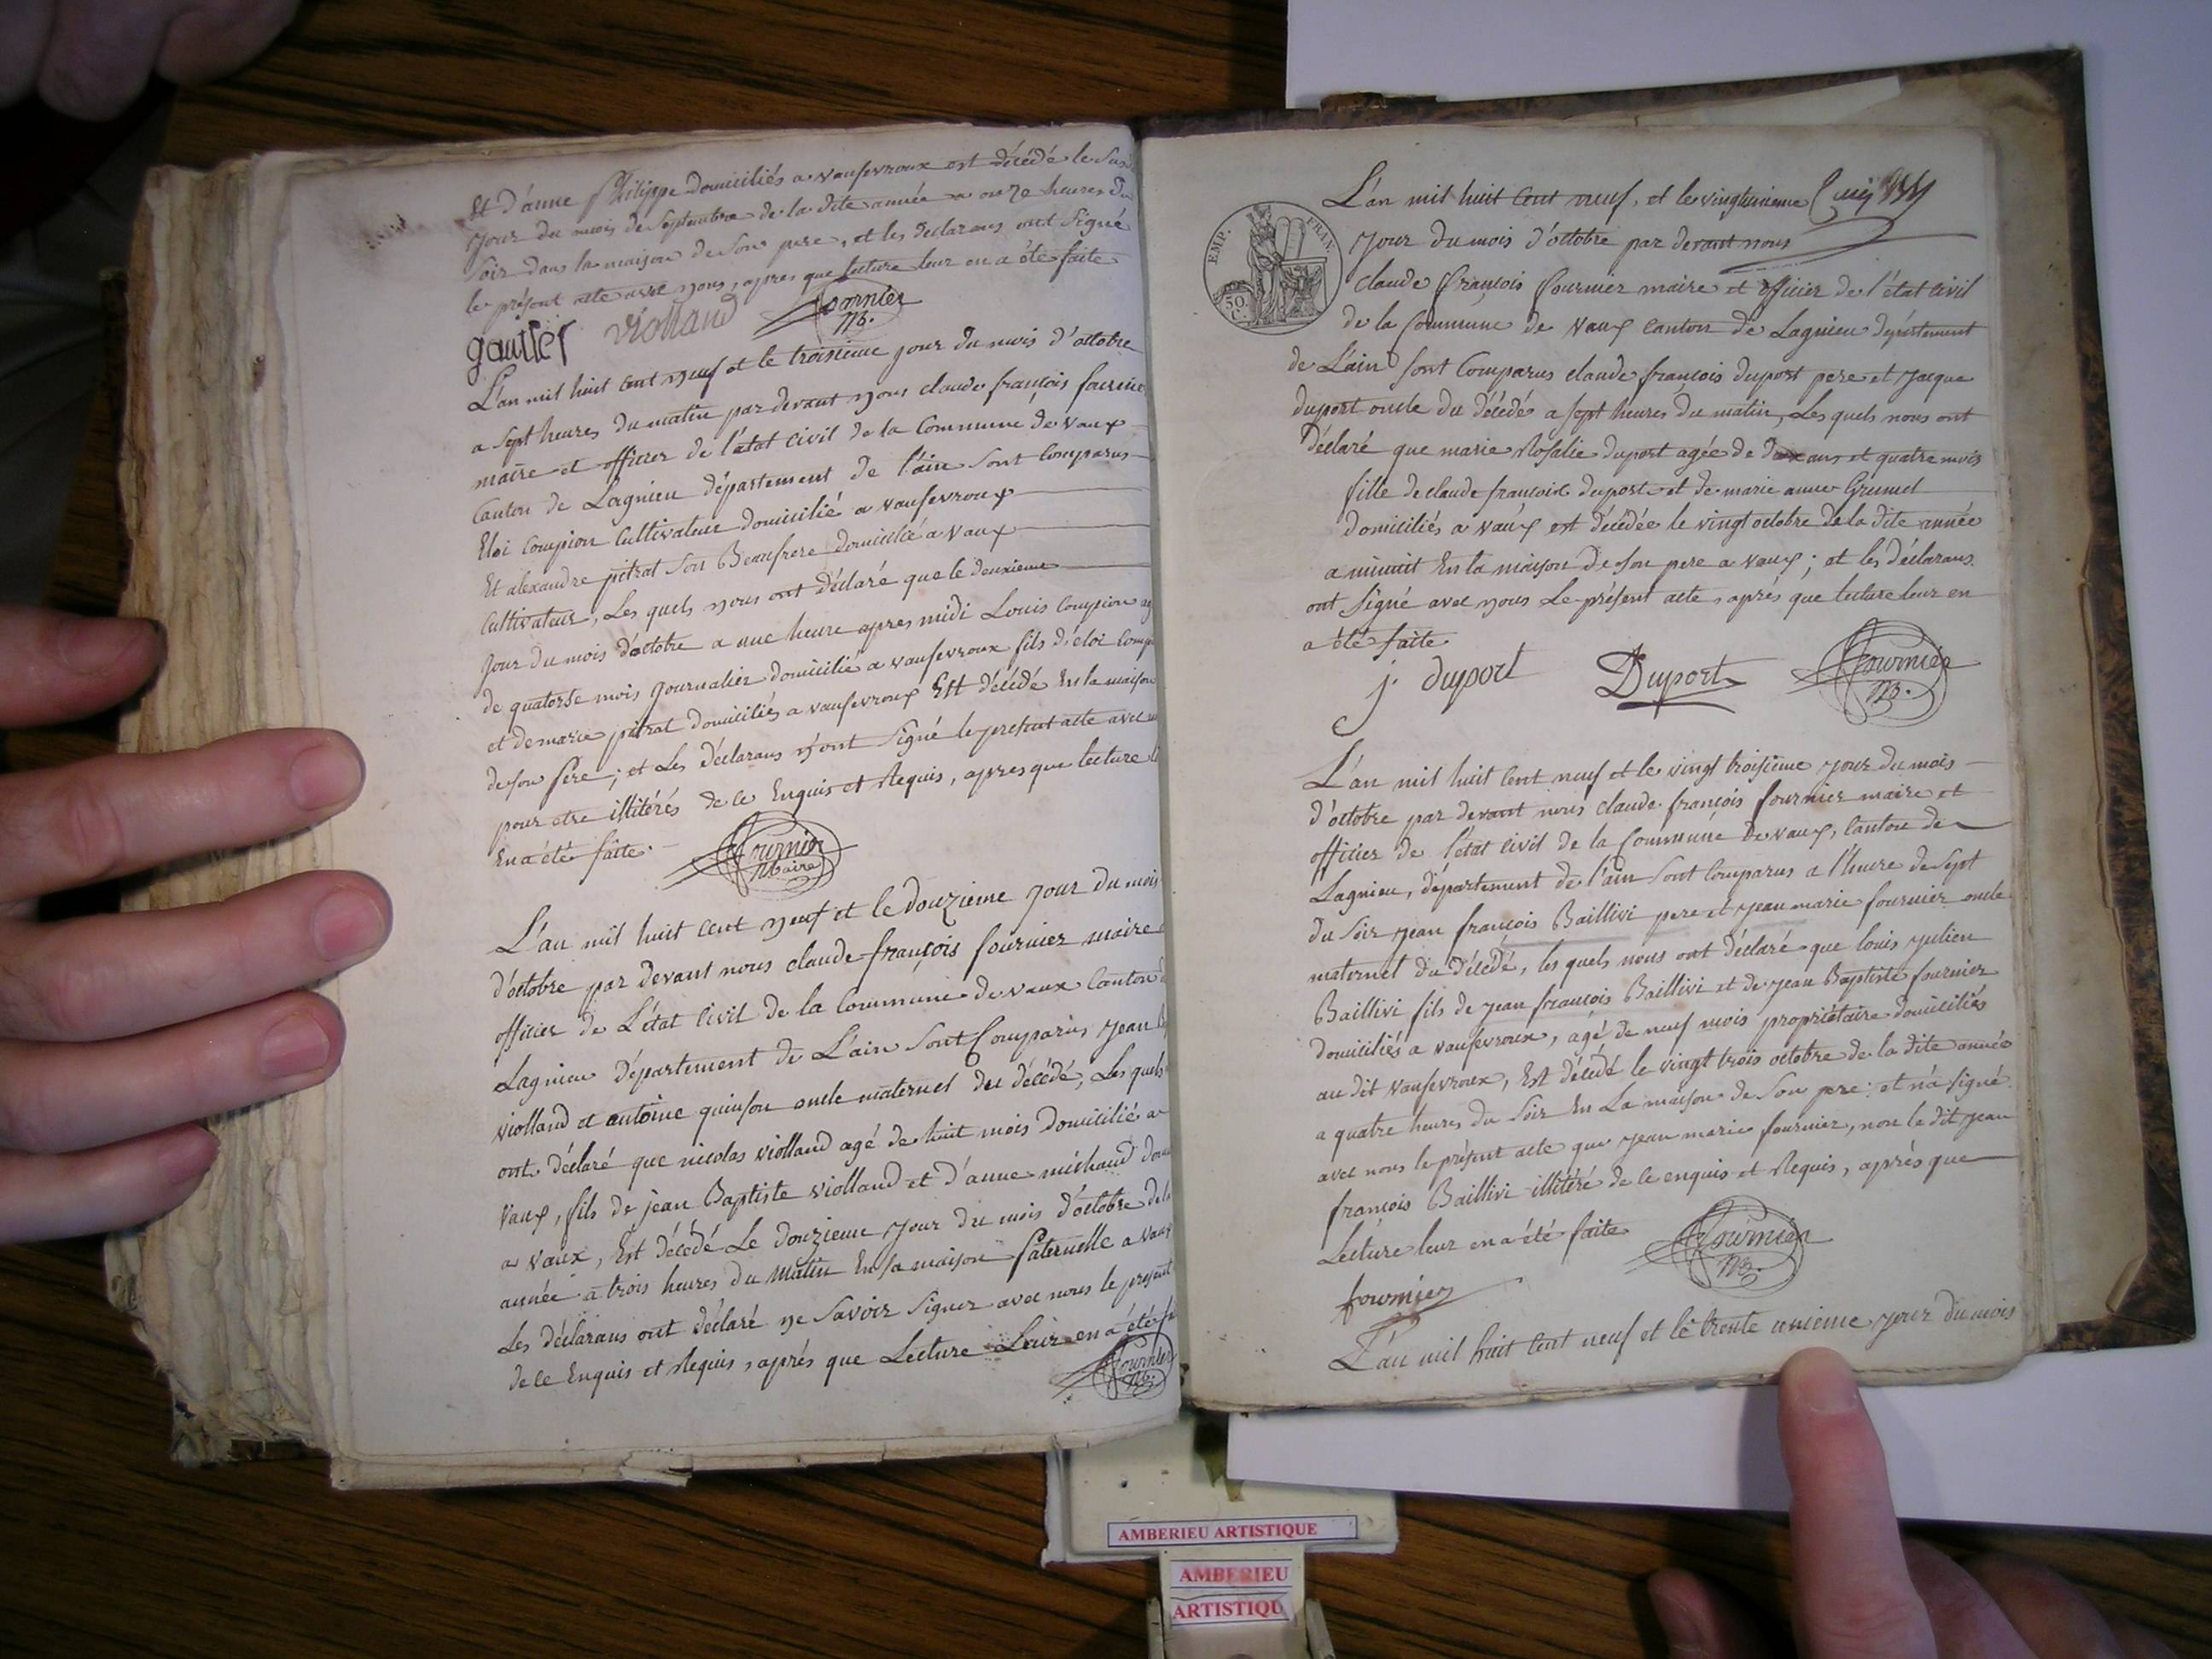 Et d'anne Philippe domiciliés a vaufevroux est décédé le
jour du mois de Septembre de la dite année a onze heures du
soir dans la maison de son pere, et les déclarans ont signé
le présent acte avec nous, apres que lecture leur en a été faite
gautier violland fournier
L'an mil huit cent neuf et le troisieme jour du mois d'octobre
a sept heures du matin par devant nous claude françois fournier
maire et officier de l'état civil de la Commune de vaux
Canton de Lagnieu département de l'ain sont comparus
Eloi Compion Cultivateur domicilié a vaufevroux
Et alexandre pitrat son Beaufrere domicilié a vaux
Cultivateur, Les quels nous ont déclaré que le deuxieme
jour du mois d'octobre a une heure apres midi Louis Compion
de quatorse mois journalier domicilié a vaufevroux fils d'eloi
et de marie pitrat domiciliés a vaufevroux Est décédé En la maison
de son pere; et Les déclarans n'ont signé le présent acte avec
pour etre illitérés de ce Enquis et Requis, apres que lecture
En a été faite. fournier
Maire
L'an mil huit cent neuf et le douzieme jour du mois
d'octobre par devant nous claude françois fournier maire
officier de L'état Civil de la Commune de vaux Canton
Lagnieu département de L'ain sont Comparus, jean
violland et antoine quinson oncle maternel du décédé, Les quels
ont déclaré que nicolas violland agé de huit mois domicilié a
vaux, fils de jean Baptiste violland et d'anne michaud
a vaux, Est décédé Le douzieme jour du mois d'octobre de
année a trois heures du matin En sa maison paternelle a vaux
Les déclarans ont déclaré ne savoir signer avec nous le présent
de ce Enquis et Requis, aprés que Lecture Leur en a été
fournier
L'an mil huit cent neuf, et le vingtunieme
jour du mois d'octobre par devant nous
claude françois fournier maire et officier de l'état civil
de la Commune de vaux canton de Lagnieu département
de L'ain sont Comparus claude françois duport pere et Jacque
duport oncle du décédé a sept heures du matin, Les quels nous ont
déclaré que marie Rosalie duport agée de ans et quatre mois
fille de claude francois duport et de marie anne Grumel
domiciliés a vaux est décédée le vingt octobre de la dite année
a minuit En la maison de son pere a vaux; et les déclarans
ont signé avec nous Le présent acte, aprés que lecture leur en
a été faite
j. duport Duport fournier
EMP. FRAN.
50.
L'an mil huit cent neuf et le vingt troisieme jour du mois
d'octobre par devant nous claude françois fournier maire et
officier de l'état civil de la Commune de vaux, canton de
Lagnieu, département de l'ain sont comparus a l'heure de sept
du soir jean françois Baillivi pere et jean marie fournier oncle
maternel du décédé, les quels nous ont déclaré que louis julien
Baillivi fils de jean françois Baillivi et de jean Baptiste fournier
domiciliés a vaufevroux, agé de neuf mois propriétaire domiciliés
au dit vaufevroux, Est décédé le vingt trois octobre de la dite année
a quatre heures du soir En La maison de son pere; et n'a signé
avec nous le présent acte que jean marie fournier, non le dit jean
françois Baillivi illitéré de ce enquis et Requis, aprés que
Lecture leur en a été faite fournier
fournier
L'an mil huit cent neuf et le trente unieme jour du mois
AMBERIEU ARTISTIQUE
AMBERIEU
ARTISTIQU